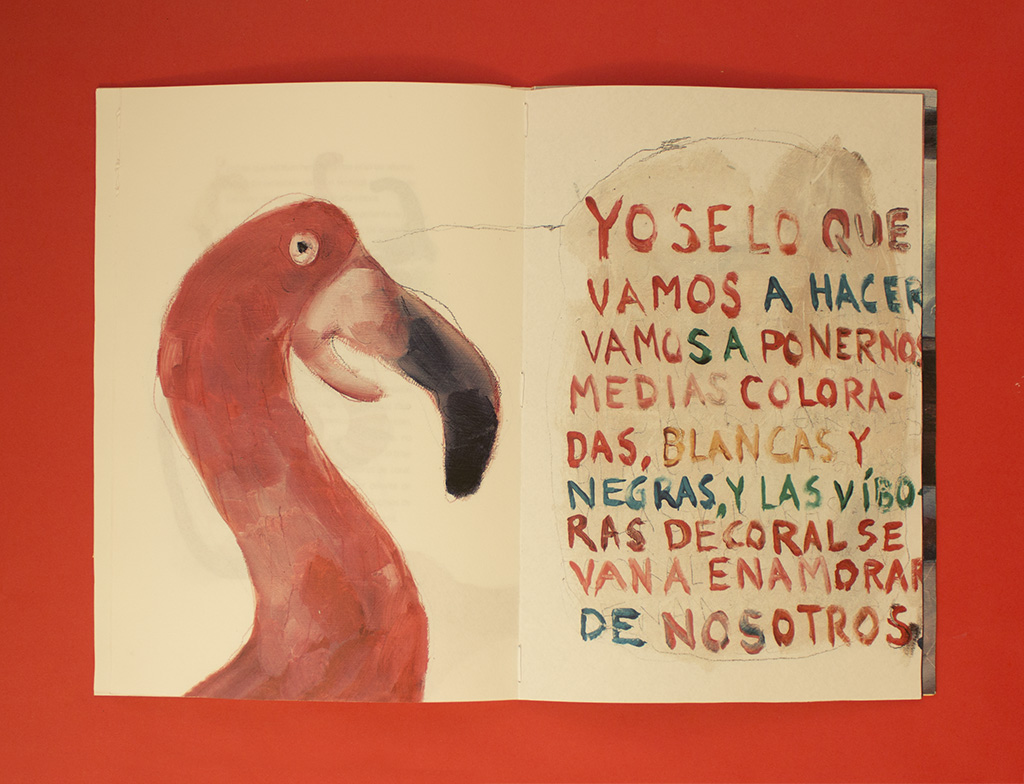 YO SE LO QUE
VAMOS A HACER
VAMOS A PONERNOS
MEDIAS COLORA-
DAS, BLANCAS Y
NEGRAS, Y LAS VÍBO-
RAS DE CORAL SE
VAN A ENAMORAR
DE NOSOTROS.